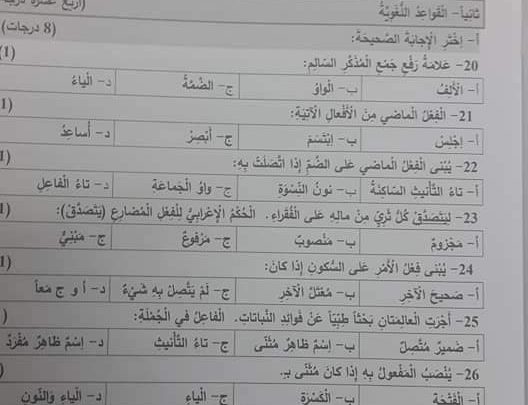 ثانياً- القواعد اللغويّة (أربع عشرة درجة)
أ- اختر الإجابة الصحيحة: (8 درجات)
20- علامة رفع جمع المذكّر السالم: (1)
أ- الألف ب- الواو ج- الضّمّة د- الياء
21- الفعل الماضي من الأفعال الآتية: (1)
أ- اجلس ب- ابتسم ج- أبصر د- استمع
22- يُبنى الفعل الماضي على الضّم إذا اتّصلت به: (1)
أ- تاء التّأنيث السّاكنة ب- نون النّسوة ج- واو الجماعة د- تاء الفاعل
23- ليتصدّق كلّ ثريّ من ماله على الفقراء. الحكم الإعرابيّ للفعل المضارع (يتصدّق): (1)
أ- مجزومٌ ب- منصوبٌ ج- مرفوعٌ ج- مبنيٌّ
24- يُبنى فعل الأمر على السّكون إذا كان: (1)
أ- صحيح الآخر ب- معتلّ الآخر ج- لم يتّصل به شيءٌ د- أ و ج معاً
25- أجرت العالمتان بحثاً طبيّاً عن فوائد النباتات. الفاعل في الجملة: )
أ- ضمير متّصل ب- اسم ظاهر مثنّى ج- تاء التأنيث د- اسم ظاهر مفردٌ
26- يُنصب المفعول به إذا كان مثنّى بـ )
أ- الفتحة ب- الكسرة ج- الياء د- الياء والنّون